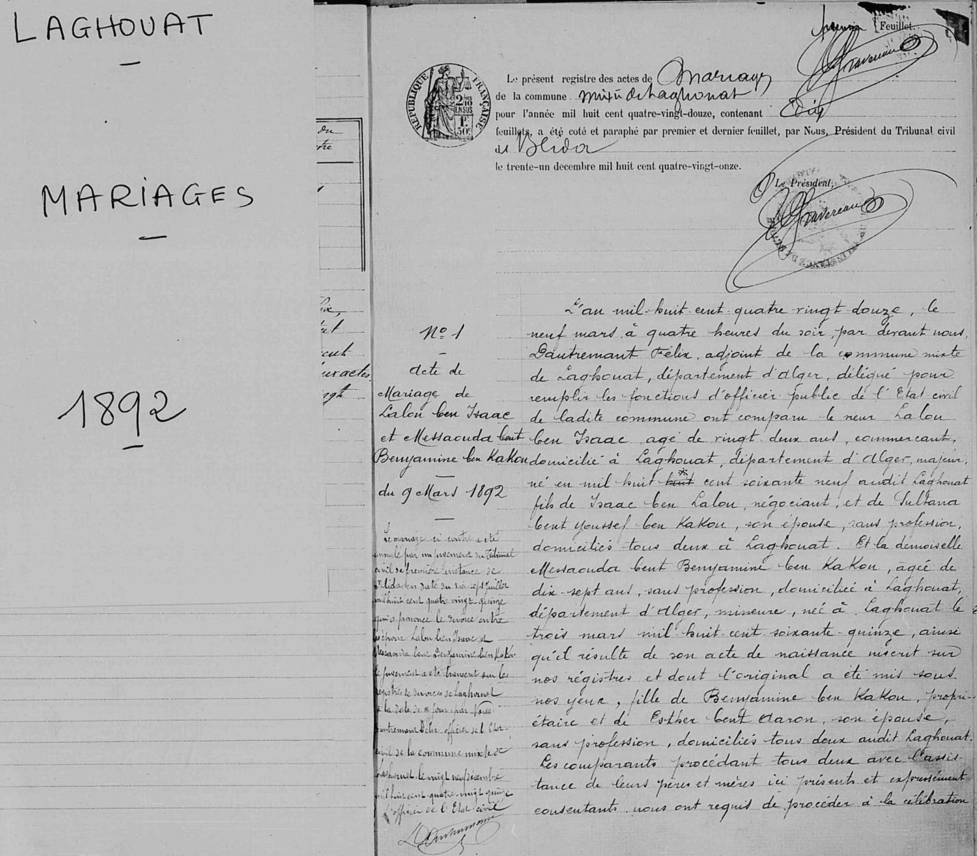 LAGHOUAT
MARIAGES
1892
premier Feuillet.
RÉPUBLIQUE FRANÇAISE
Le présent registre des actes de Mariages
de la commune mixte de Laghouat
pour l'année mil huit cent quatre-vingt-douze, contenant Dix
feuillets, a été coté et paraphé par premier et dernier feuillet, par Nous, Président du Tribunal civil
de Blida
le trente-un decembre mil huit cent quatre-vingt-onze.
Le Président,
No 1
Acte de
Mariage de
Lalou ben Isaac
et Messaouda bent
Benyamine ben Kakou
du 9 Mars 1892
Le mariage ci contre a été
annulé par un jugement du Tribunal
civil de première instance de
Blida en date du dix sept juillet
mil huit cent quatre vingt quinze
qui a prononcé le divorce entre
les époux Lalou ben Isaac et
Messaouda bent Benyamine ben Kakou
le jugement a été transcrit sur les
registres de divorces de Laghouat
à la date de ce jour par Nous
Dautremant Félix officier de l'Etat
civil de la commune mixte de
Laghouat le vingt
mil huit cent quatre-vingt quinze
L'officier de l'Etat civil
L'an mil huit cent quatre vingt douze, le
neuf mars à quatre heures du soir, par devant nous
Dautremant Félix, adjoint de la commune mixte
de Laghouat, département d'Alger, délégué pour
remplir les fonctions d'officier public de l'Etat civil
de ladite commune ont comparu le sieur Lalou
ben Isaac, agé de vingt deux ans, commercant,
domicilié à Laghouat, département d'Alger, majeur,
né en mil huit huit cent soixante neuf audit Laghouat
fils de Isaac ben Lalou, négociant, et de Sultana
bent Youssef ben Kakou, son épouse, sans profession,
domiciliés tous deux à Laghouat. Et la demoiselle
Messaouda bent Benyamine ben Kakou, agée de
dix-sept ans, sans profession, domiciliée à Laghouat,
département d'Alger, mineure, née à Laghouat le
trois mars mil huit cent soixante quinze, ainsi
qu'il résulte de son acte de naissance inscrit sur
nos régistres et dont l'original a été mis sous
nos yeux, fille de Benyamine ben Kakou, propri-
étaire et de Esther bent Aaron, son épouse,
sans profession, domiciliés tous deux audit Laghouat.
Les comparants procédant tous deux avec l'assis
tance de leurs pères et mères ici présents et expressément
consentants nous ont requis de procéder à la célébration